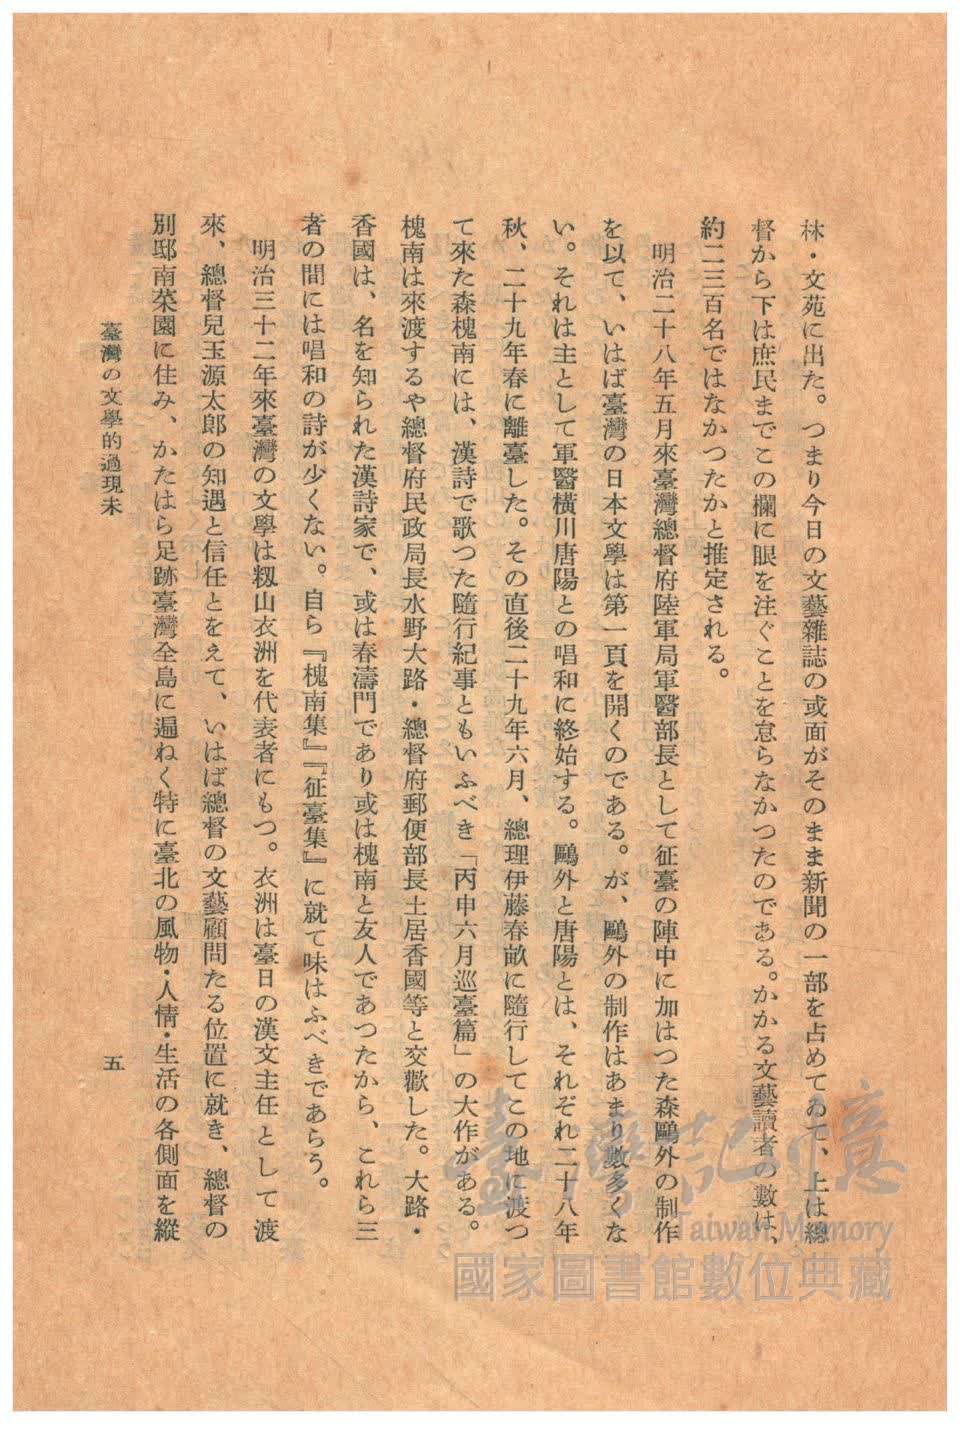 林・文苑に出た。つまり今日の文藝雜誌の或面がそのまま新聞の一部を占めてゐて、上は總
督から下は庶民までこの欄に眼を注ぐことを怠らなかつたのである。かかる文藝讀者の數は、
約二三百名ではなかつたかと推定される。
明治二十八年五月來臺灣總督府陸軍局軍醫部長として征臺の陣中に加はつた森鷗外の制作
を以て、いはば臺灣の日本文學は第一頁を開くのである。が、鷗外の制作はあまり數多くな
い。それは主として軍醫橫川唐陽との唱和に終始する。鷗外と唐陽とは、それぞれ二十八年
秋、二十九年春に離臺した。その直後二十九年六月、總理伊藤春畝に隨行してこの地に渡つ
て來た森槐南には、漢詩で歌つた隨行紀事ともいふべき「丙申六月巡臺篇」の大作がある。
槐南は來渡するや總督府民政局長水野大路・總督府郵便部長土居香國等と交歡した。大路・
香國は、名を知られた漢詩家で、或は春濤門であり或は槐南と友人であつたから、これら三
者の間には唱和の詩が少くない。自ら『槐南集』『征臺集』に就て味はふべきであらう。
明治三十二年來臺灣の文學は籾山衣洲を代表者にもつ。衣洲は臺日の漢文主任として渡
來、總督兒玉源太郎の知遇と信任とをえて、いはば總督の文藝顧問たる位置に就き、總督の
別邸南菜園に住み、かたはら足跡臺灣全島に遍ねく特に臺北の風物・人情・生活の各側面を縱
臺灣の文學的過現未
五
臺灣記憶
Taiwan Memory
國家圖書館數位典藏